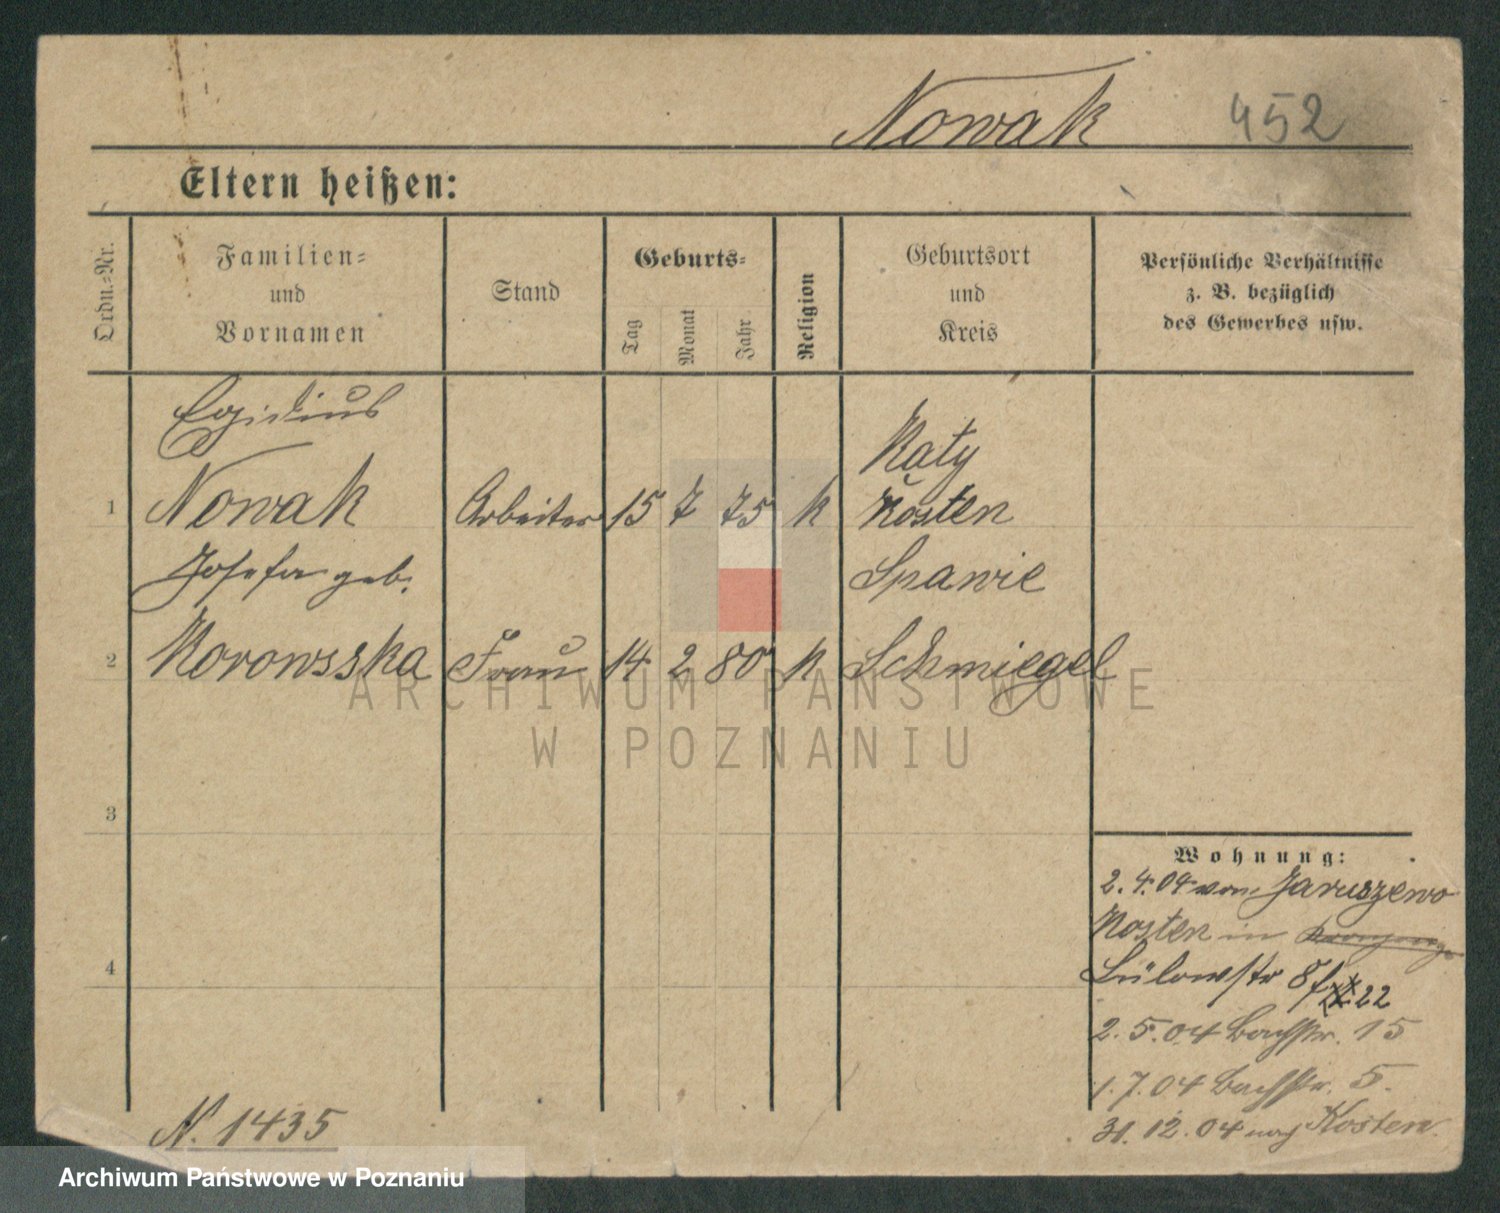 Nowak 452
Eltern heißen:
Ordn.-Nr.
Familien-
und
Vornamen
Stand
Geburts-
Tag
Monat
Jahr
Religion
Geburtsort
und
Kreis
Persönliche Verhältnisse
z. B. bezüglich
des Gewerbes usw.
Egidius
Raty
1 Nowak Arbeiter 15 7 75 k Kosten
Josefa geb. Spawie
2 Morowsska Frau 14 2 80 k Schmiegel
ARCHIWUM PAŃSTWOWE
W POZNANIU
3
Wohnung:
2.4.04 von Jaruszewo
Kosten in
4
Bülowstr 8f 22
2.5.04 Bachstr. 15
1.7.04 Bachstr. 5.
31.12.04 nach Kosten.
N. 1435
Archiwum Państwowe w Poznaniu